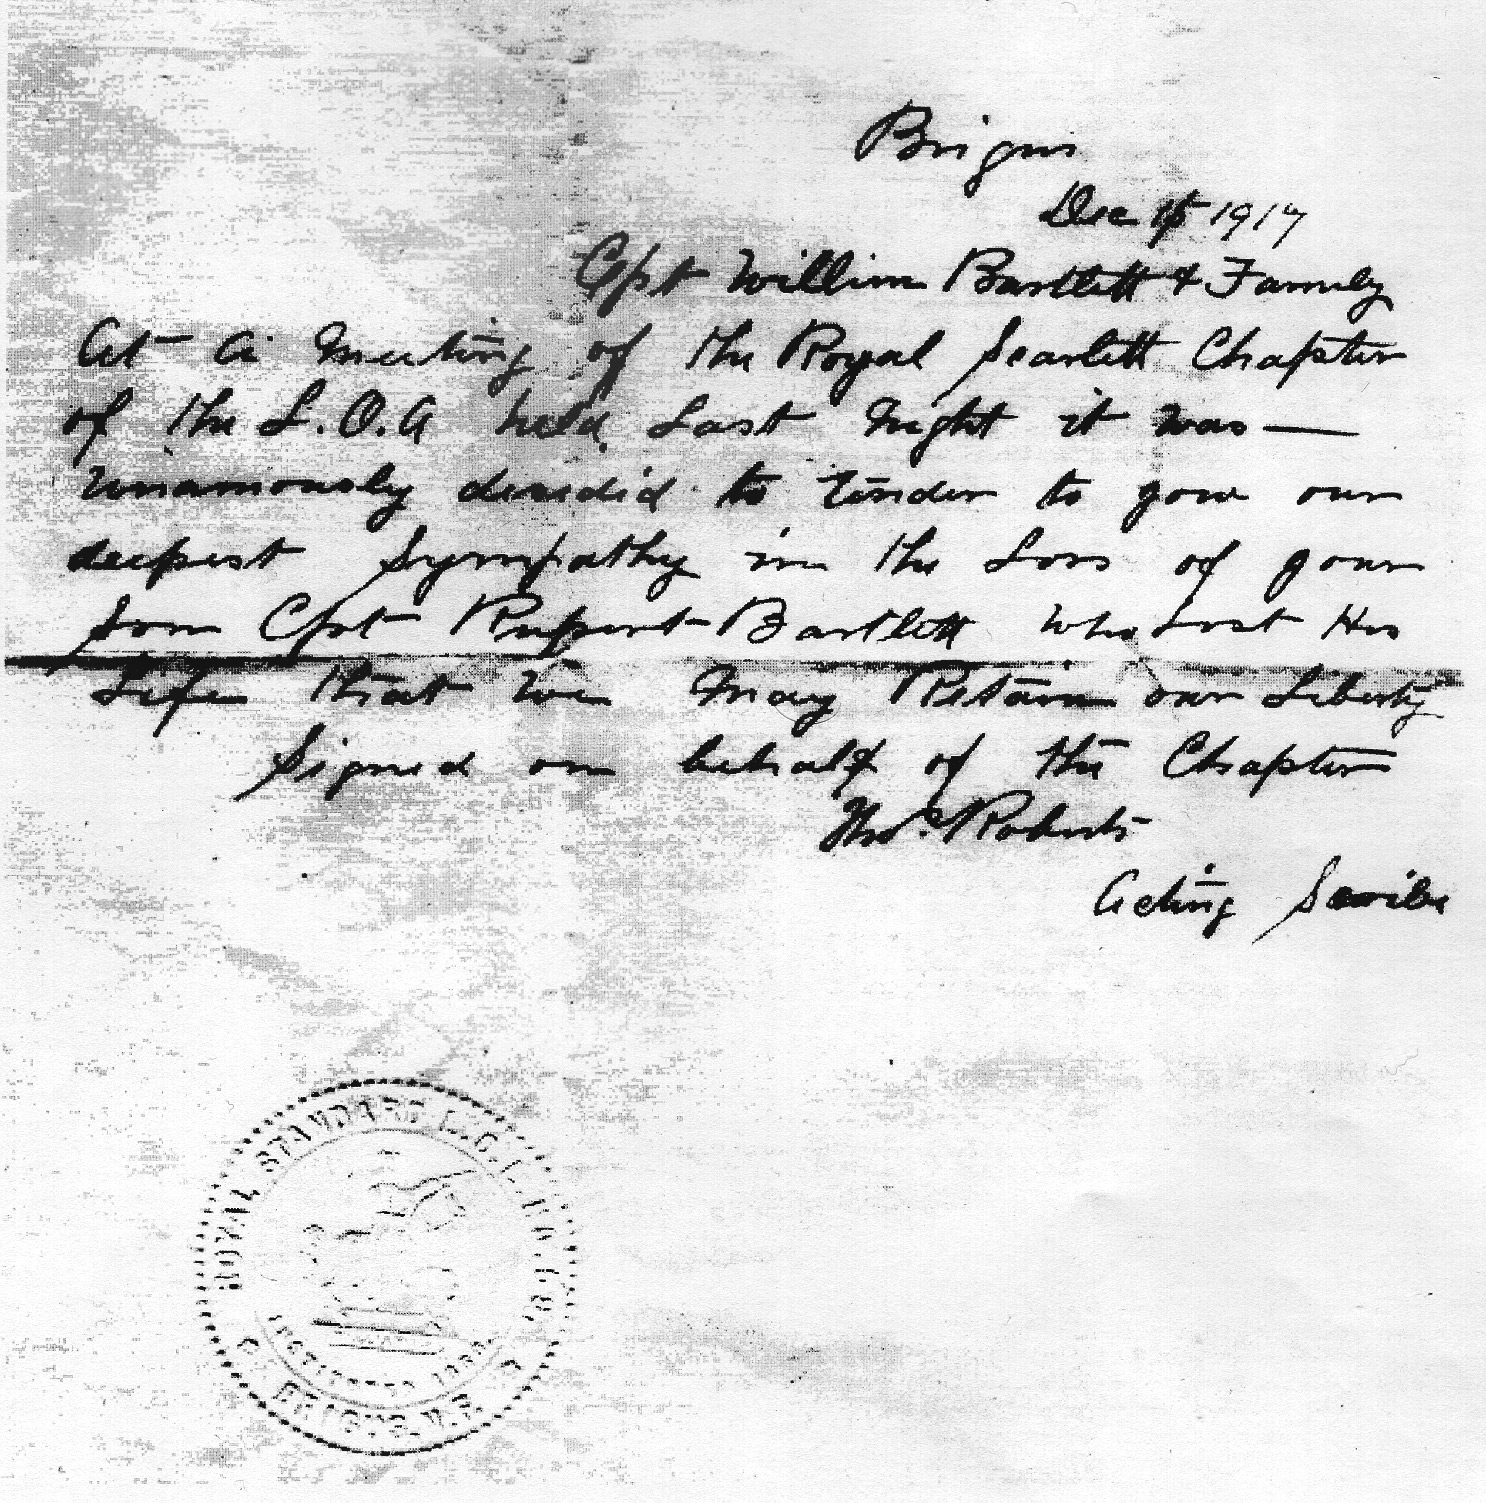 Brigus
Dec 15 1917
Cpt William Bartlett & Family
At a Meeting of the Royal Scarlett Chapter
of the L.O.A held Last Night it was —
Unamously decided to Tender to your our
deepest Sympathy in the Loss of your
Son Cpt Rupert Bartlett who Lost His
Life that we May Retain our Liberty
Signed on behalf of the Chapter
Thos. Roberts
Acting Scribe
ROYAL STANDARD L.O.L.
BRIGUS, N.F.